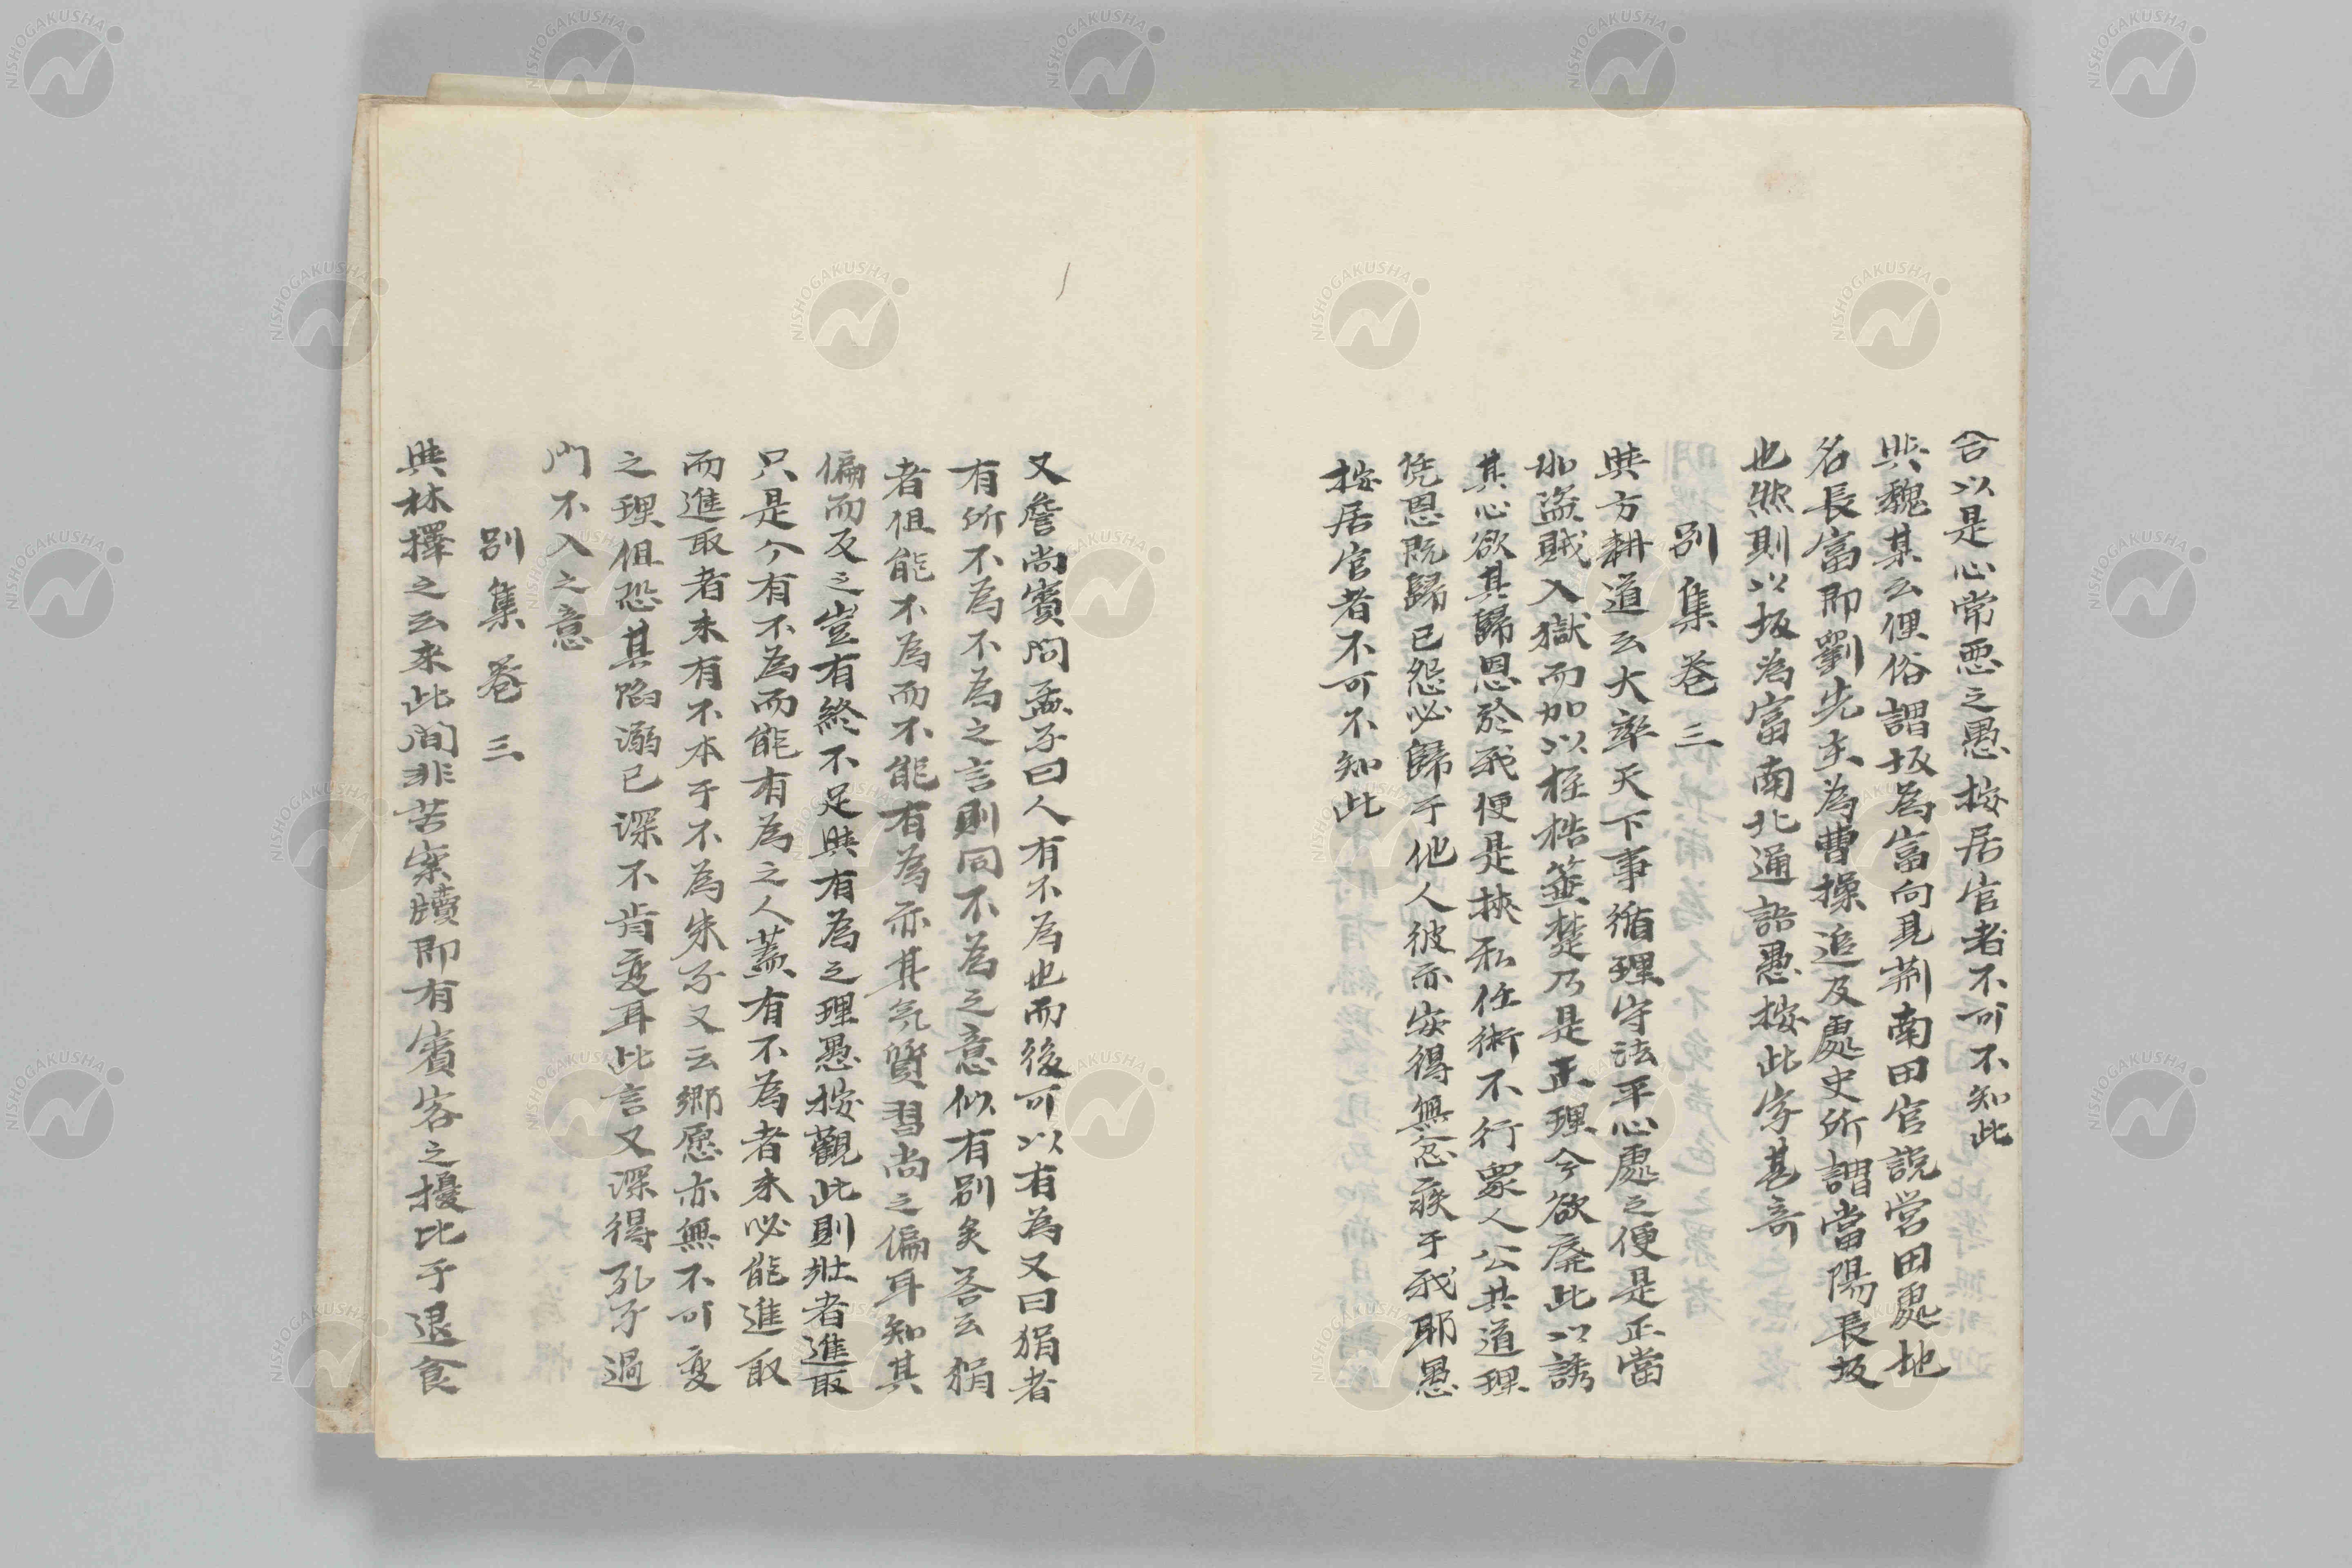 合以是心常悪之愚按居官者不可不知此
與魏某云俚俗謂坂為富向見荊南田官説営田處地
名長富即劉先主為曹操追及處史所謂當陽長坂
也然則以坂為富南北通語愚按此字甚奇
別集巻三
與方耕道云大率天下事循理守法平心處之便是正當
如盗賊入獄而加以桎梏箠楚乃是正理今欲廃此以誘
其心欲其歸恩於我便是挟私任術不行衆人公共道理
恩既歸已怨必歸于他人彼亦安得無忿疾于我耶愚
按居官者不可不知此
又詹尚賓問孟子曰人有不為也而後可以有為又曰狷者
有所不為不為之言則同不為之意似有別矣答云狷
者但能不為而不能有為亦其気質習尚之偏耳知其
偏而反之豈有終不足與有為之理愚按觀此則壯者進取
只是今有不為而能有為之人蓋有不為者未必能進取
而進取者未有不本于不為朱子又云郷愿亦無不可変
之理但恐其陷溺已深不肯変耳此言又深得孔子過
門不入之意
別集巻三
與林擇之云来此間非苦案牘即有賓客之擾比于退食
NISHOGAKUSHA